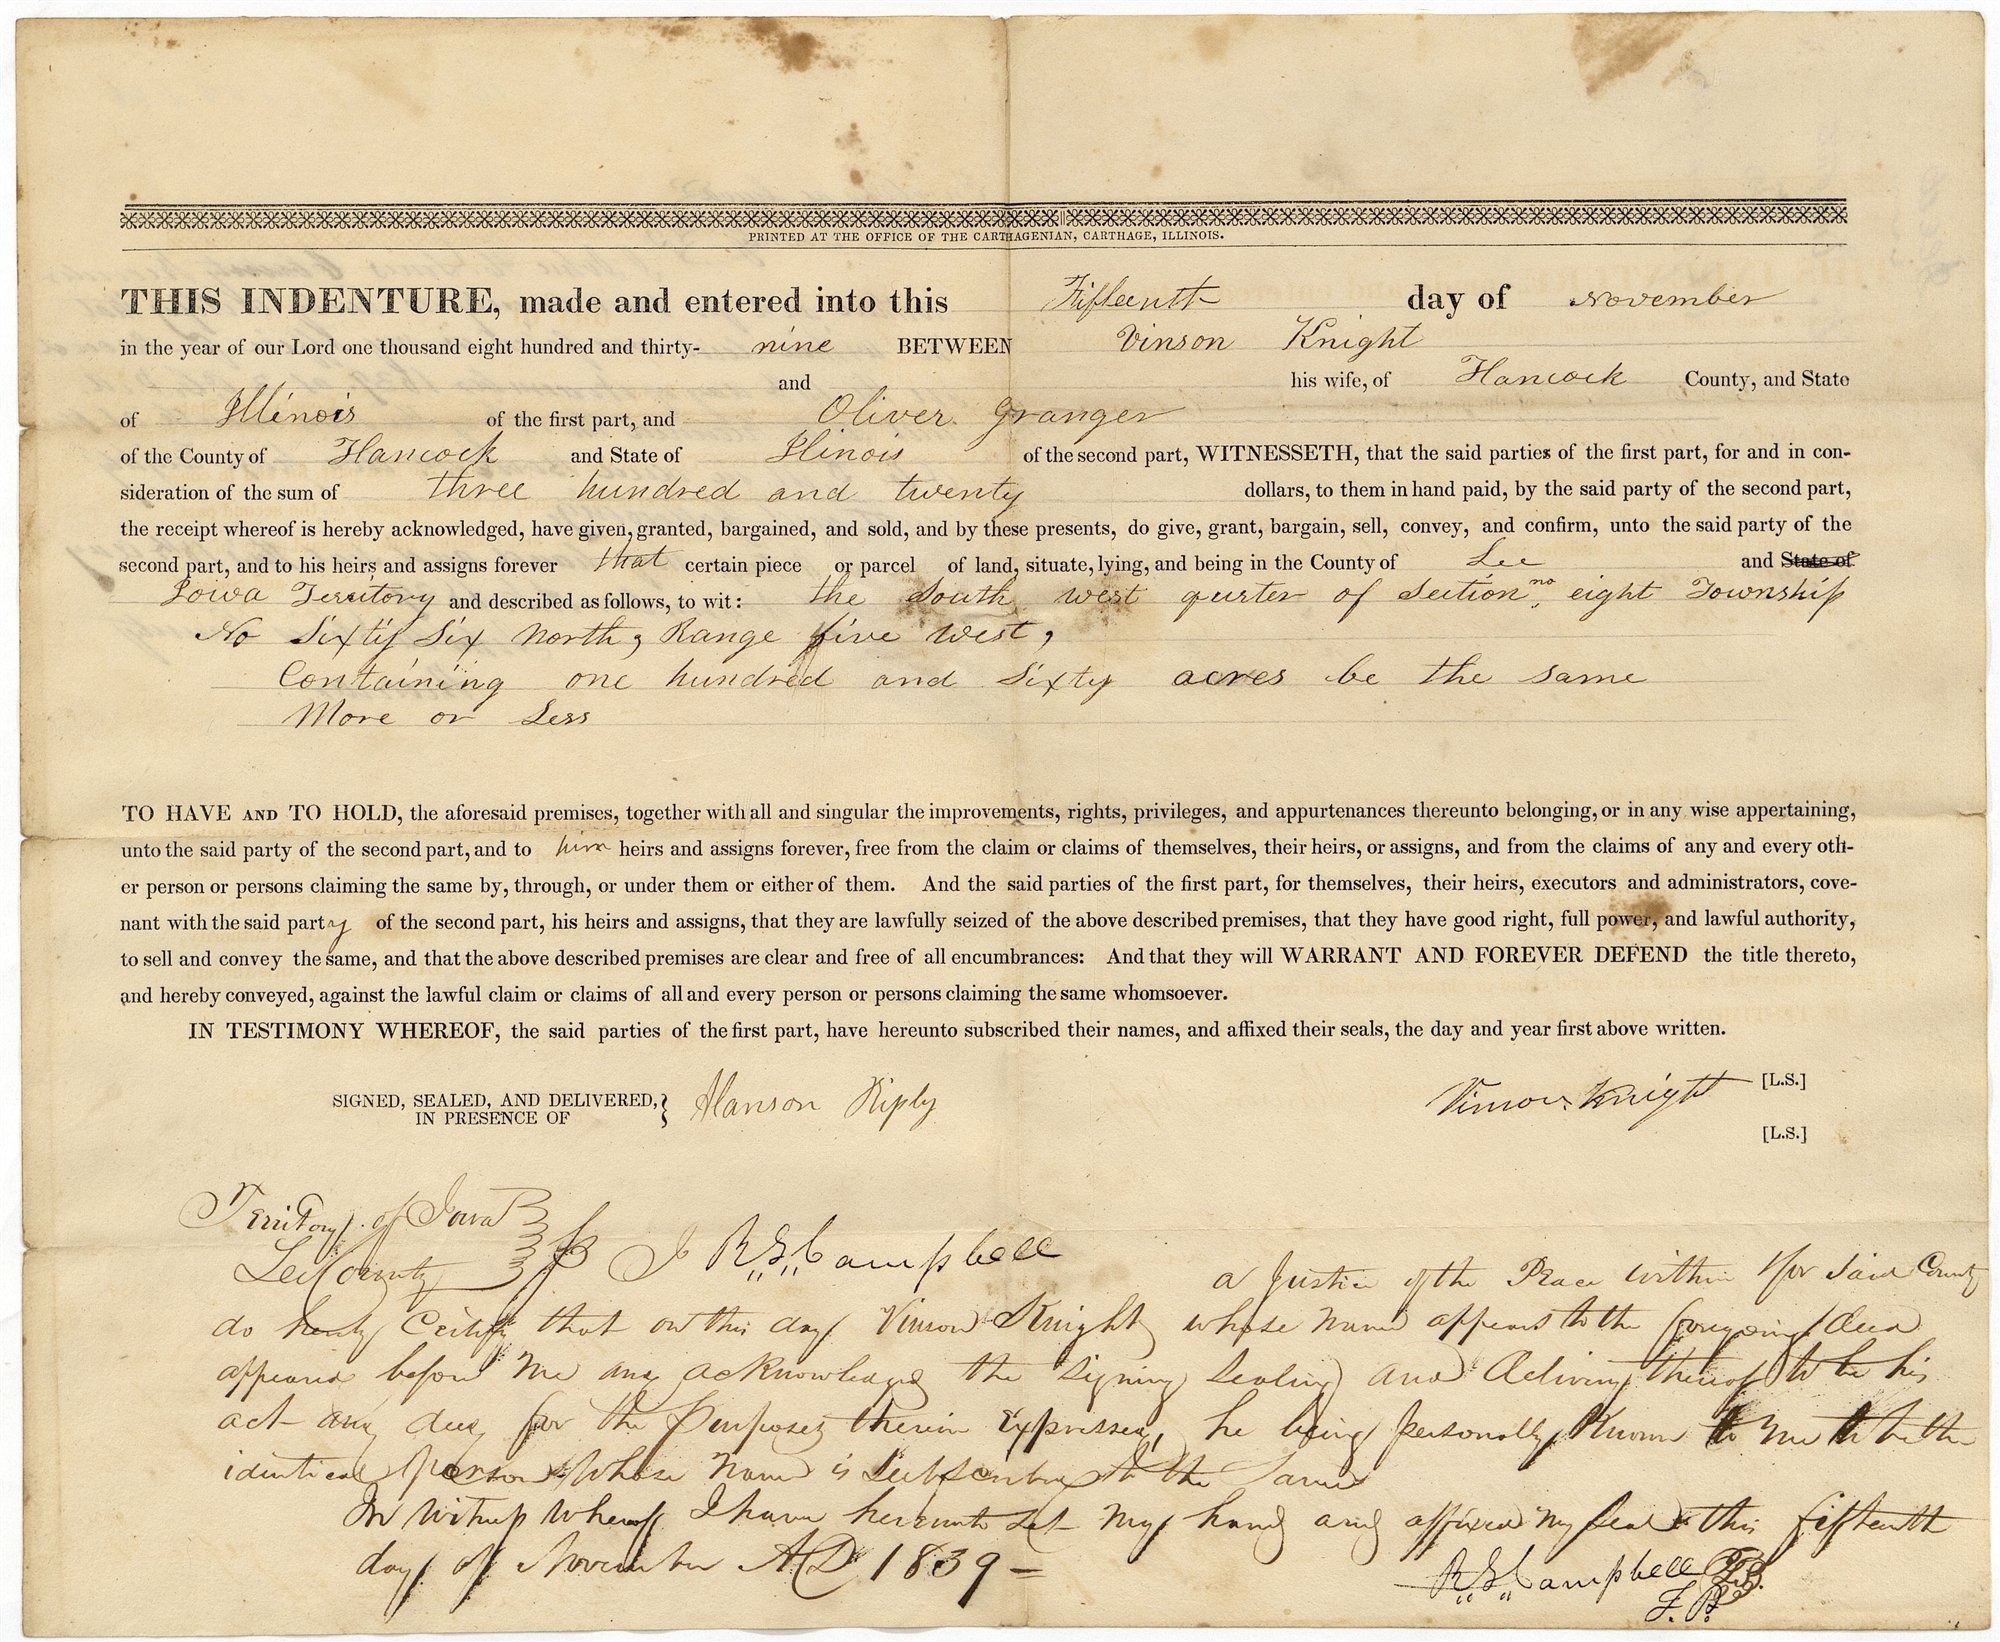 PRINTED AT THE OFFICE OF THE CARTHAGENIAN, CARTHAGE, ILLINOIS.
THIS INDENTURE, made and entered into this Fifteenth day of November
in the year of our Lord one thousand eight hundred and thirty- nine BETWEEN Vinson Knight
and his wife, of Hancock County, and State
of Illinois of the first part, and Oliver Granger
of the County of Hancock and State of Ilinois of the second part, WITNESSETH, that the said parties of the first part, for and in con-
sideration of the sum of three hundred and twenty dollars, to them in hand paid, by the said party of the second part,
the receipt whereof is hereby acknowledged, have given, granted, bargained, and sold, and by these presents, do give, grant, bargain, sell, convey, and confirm, unto the said party of the
second part, and to his heirs and assigns forever that certain piece or parcel of land, situate, lying, and being in the County of Lee and State of
Iowa Territory and described as follows, to wit: the South west qurter of Section no. eight Township
No Sixty Six North, Range five west,
Containing one hundred and Sixty acres be the same
More or Less
TO HAVE AND TO HOLD, the aforesaid premises, together with all and singular the improvements, rights, privileges, and appurtenances thereunto belonging, or in any wise appertaining,
unto the said party of the second part, and to him heirs and assigns forever, free from the claim or claims of themselves, their heirs, or assigns, and from the claims of any and every oth-
er person or persons claiming the same by, through, or under them or either of them. And the said parties of the first part, for themselves, their heirs, executors and administrators, cove-
nant with the said party of the second part, his heirs and assigns, that they are lawfully seized of the above described premises, that they have good right, full power, and lawful authority,
to sell and convey the same, and that the above described premises are clear and free of all encumbrances: And that they will WARRANT AND FOREVER DEFEND the title thereto,
and hereby conveyed, against the lawful claim or claims of all and every person or persons claiming the same whomsoever.
IN TESTIMONY WHEREOF, the said parties of the first part, have hereunto subscribed their names, and affixed their seals, the day and year first above written.
SIGNED, SEALED, AND DELIVERED, } Alanson Riply Vinson Knight [L.S.]
IN PRESENCE OF
[L.S.]
Territory of Iowa
Lee County I R. S. Campbell a Justice of the Peace within & for Said County
do herby Certify that on this day Vinson Knight whose name appears to the foregoing deed
appeared before me and acknowledged the Signing Sealing and delivery thereof to be his
act and deed for the Purposes therein Expressed, he being personally Known to me to be the
identical person whose name is Subscribed to the Same
In Witness whereof I have hereunto Set my hand and affixed my Seal this fifteenth
day of November AD 1839 —
R. S. Campbell
J. P.